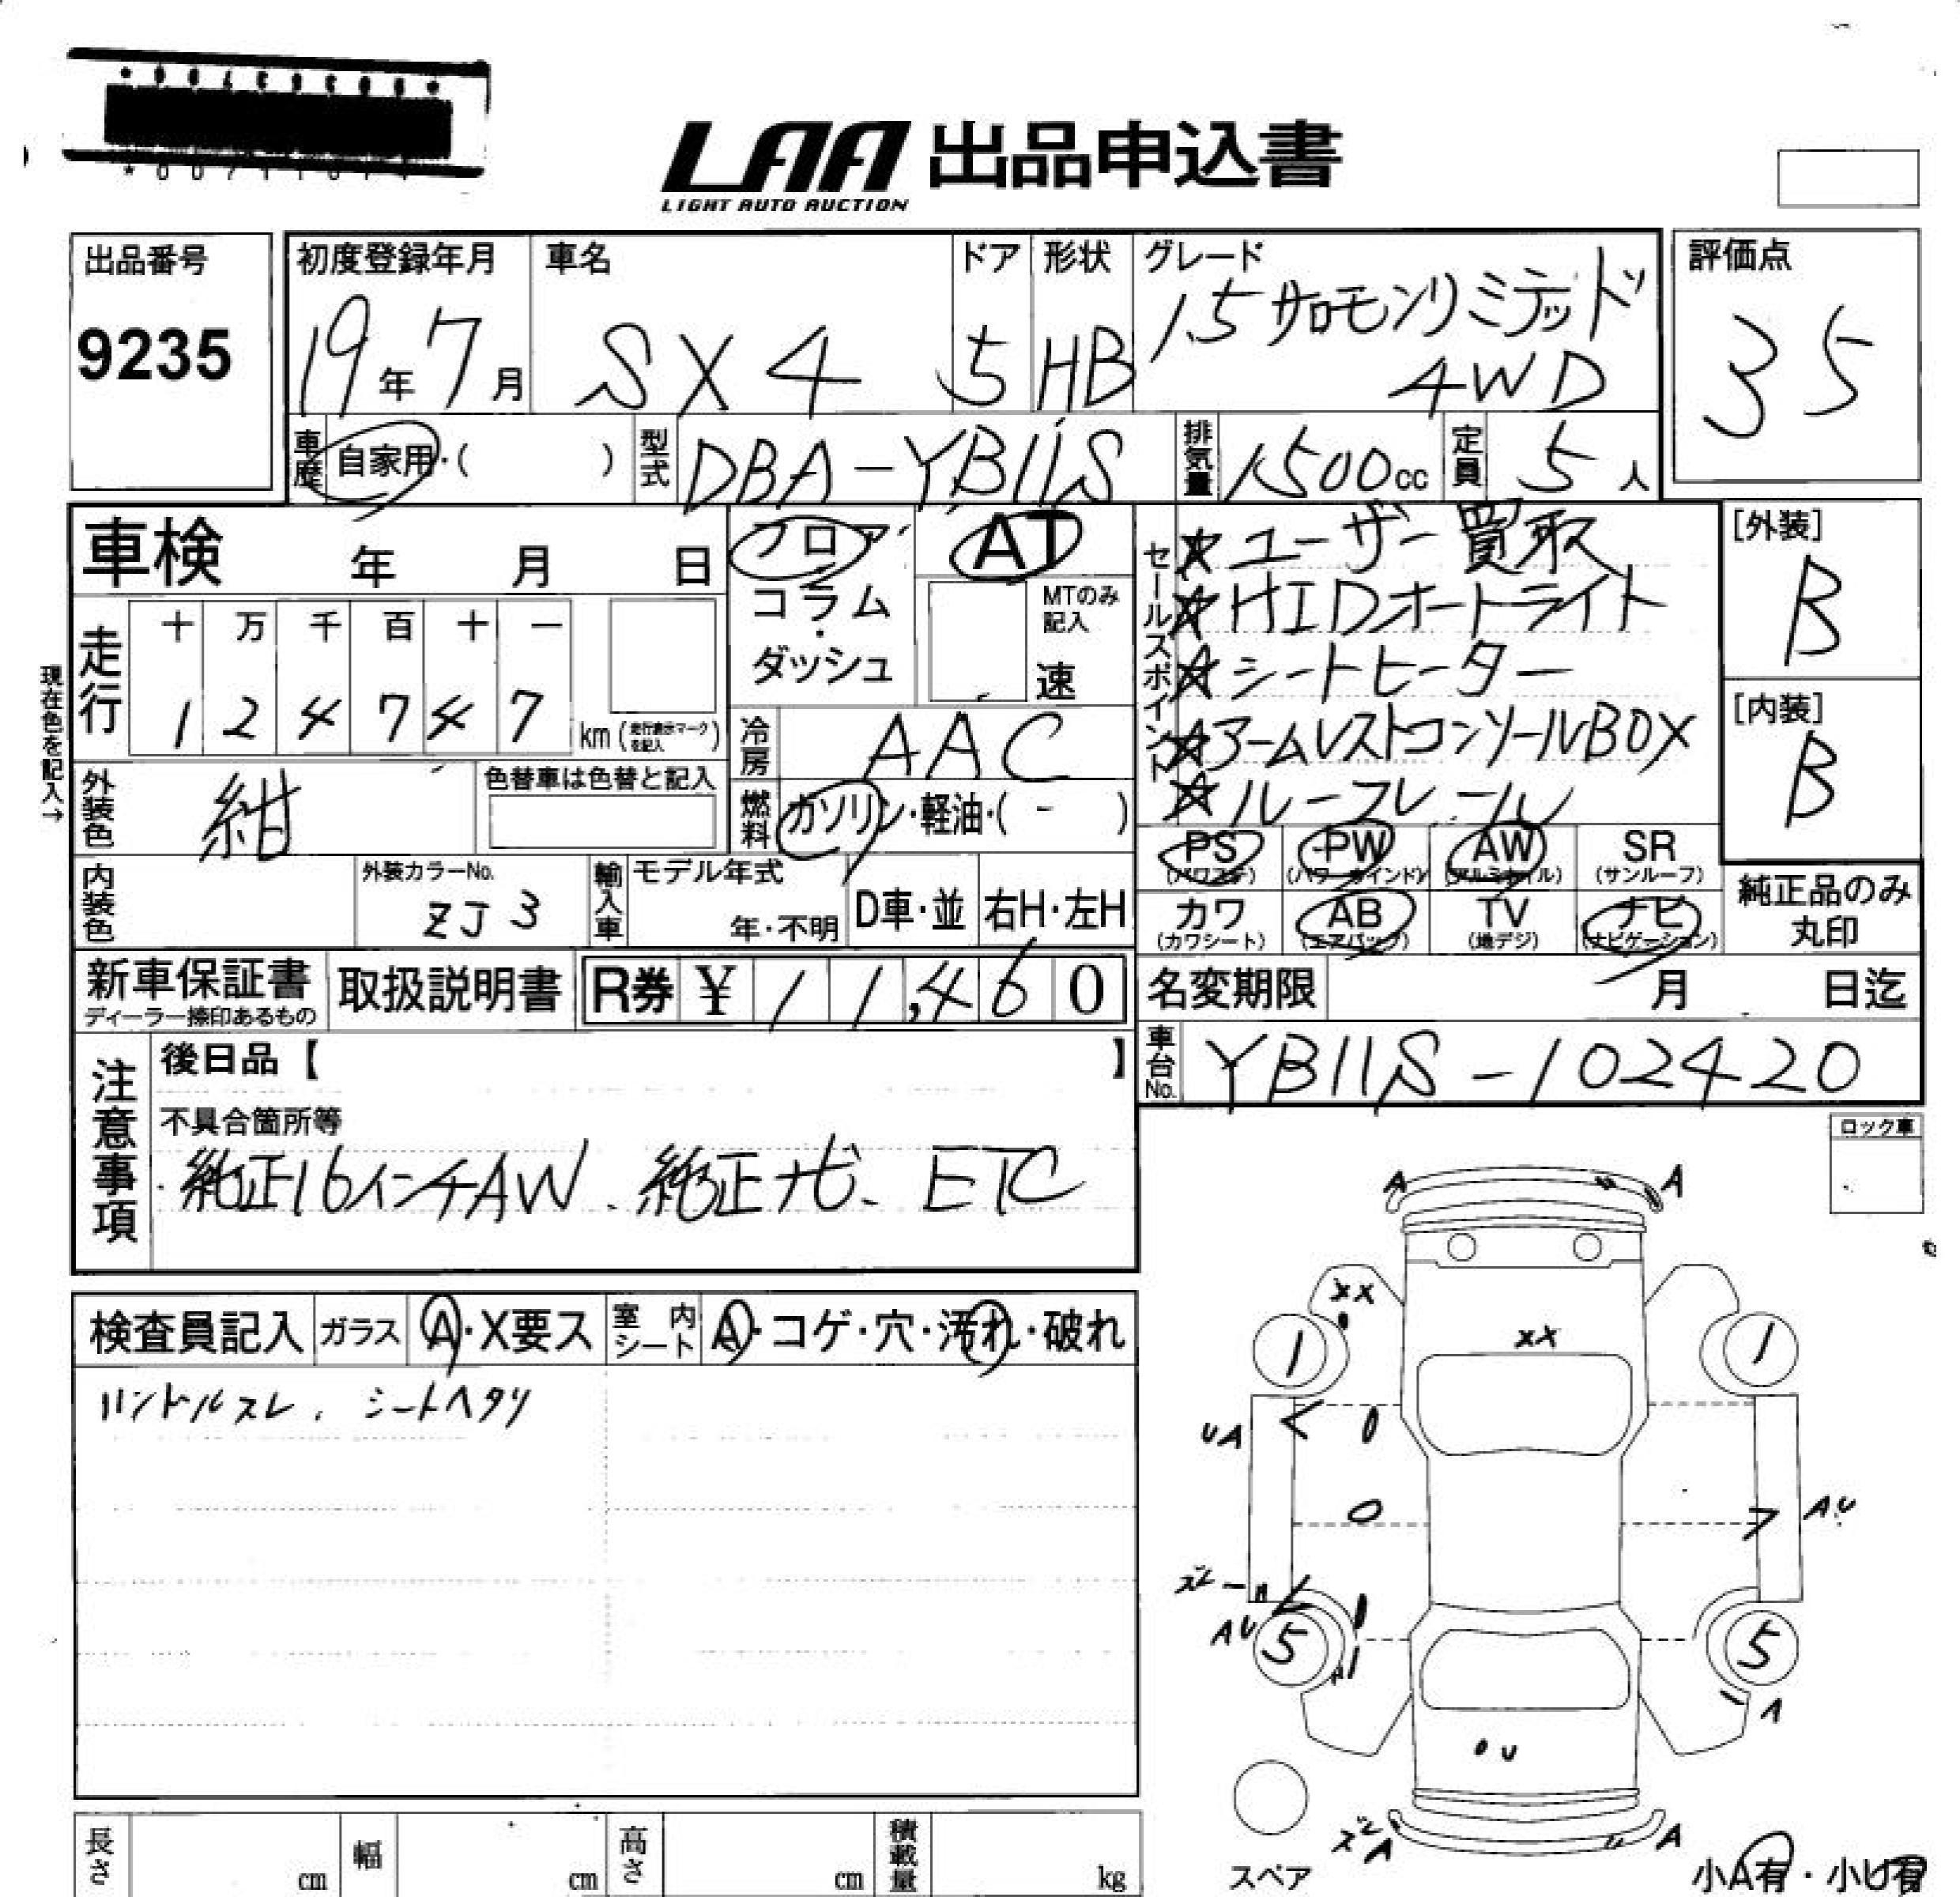 LAA 出品申込書
LIGHT AUTO AUCTION
出品番号
9235
初度登録年月
19年7月
車名
SX4
ドア
5
形状
HB
グレード
1.5サロモンリミテッド
4WD
評価点
35
車歴
自家用・( )
型式
DBA-YB11S
排気量
1500cc
定員
5人
車検 年 月 日
フロア
コラム
・
ダッシュ
AT
MTのみ
記入
速
セールスポイント
☆ユーザー買取
☆HIDオートライト
☆シートヒーター
☆アームレストコンソールBOX
☆ルーフレール
[外装]
B
[内装]
B
現在色を記入→
走行
十 万 千 百 十 一
1 2 4 7 4 7
km(走行表示マークを記入)
冷房
AAC
外装色
紺
色替車は色替と記入
燃料
ガソリン・軽油・( - )
PS
(パワステ)
PW
(パワーウインド)
AW
(アルミホイル)
SR
(サンルーフ)
カワ
(カワシート)
AB
(エアバッグ)
TV
(地デジ)
ナビ
(ナビゲーション)
純正品のみ
丸印
内装色
外装カラーNo.
ZJ3
輸入車
モデル年式
年・不明
D車・並
右H・左H
新車保証書
ディーラー捺印あるもの
取扱説明書
R券 ¥ 11,460
名変期限 月 日迄
車台No.
YB11S-102420
注意事項
後日品【 】
不具合箇所等
純正16インチAW、純正ナビ、ETC
ロック車
検査員記入
ガラス
A・X要ス
室内シート
A・コゲ・穴・汚れ・破れ
ハンドルスレ、シートヘタリ
A A
XX
XX
1 1
UA
AU
ズレ
AU
5 5
A
U
ズレ
A A
スペア
小A有・小U有
長さ cm
幅 cm
高さ cm
積載量 kg